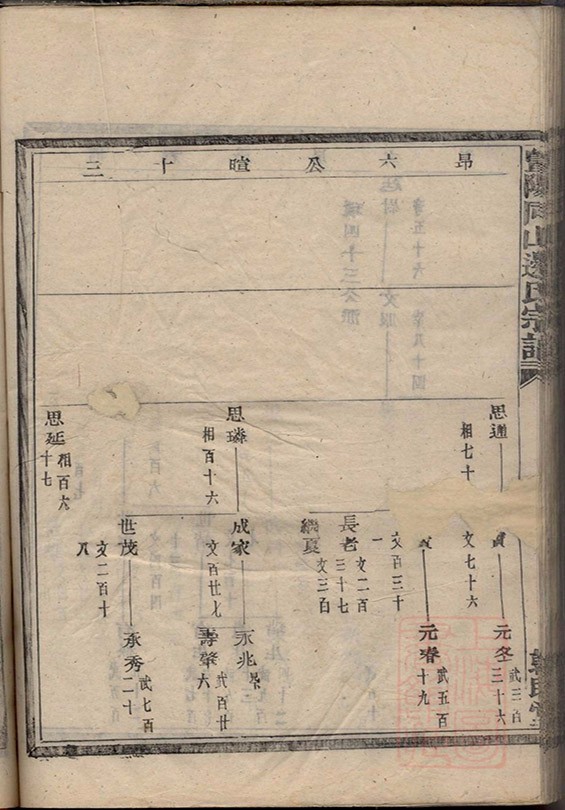 暨陽同山邊氏宗譜
昂六公暄十三
思通
相七十
文七十六
元冬
武三百
三十六
文百三十
一
元春
武五百
十九
長老
文二百
三十七
繼夏
文三百
思璘
相百十六
成家
文百廿九
永兆
壽肇
武百廿
六
世茂
文二百十
八
承秀
武七百
二十
思延
相百六
十七